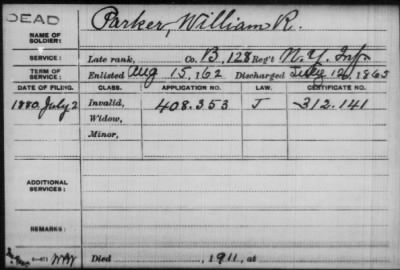 DEAD
Parker, William R.
NAME OF
SOLDIER:
SERVICE: Late rank, Co. B, 128 Reg't N.Y. Inf
TERM OF
SERVICE: Enlisted Aug 15, 1862 Discharged July 12, 1865
DATE OF FILING. CLASS. APPLICATION NO. LAW. CERTIFICATE NO.
1880, July 2 Invalid, 408.353 J 312.141
Widow,
Minor,
ADDITIONAL
SERVICES:
REMARKS:
Died , 1911, at